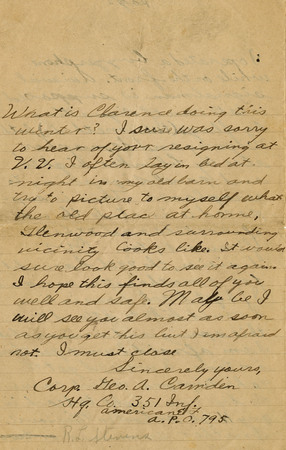 What is Clarence doing this
winter? I sure was sorry
to hear of your resigning at
V. V. I often lay in bed at
night in my old barn and
try to picture to myself what
the old plac at home,
Glenwood and surrounding
vicinity looks like. It would
sure look good to see it again.
I hope this finds all of you
well and safe. May be I
will see you almost as soon
as you get this but I'm afraid
not. I must close
Sincerely yours,
Corp. Geo. A. Camden
Hq. Co. 351 Inf.
american
a.P.O. 795